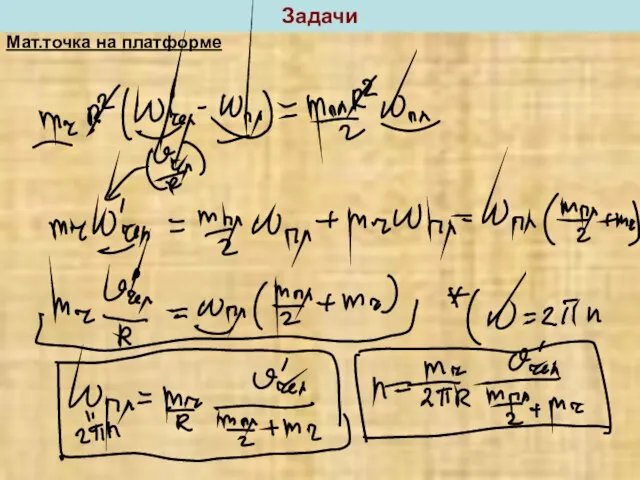 Задачи
Мат.точка на платформе
m_ч R² (ω'_чел - ω_пл) = m_пл R² / 2 ω_пл
(υ'_чел / R)
m_ч ω'_чел = m_пл / 2 ω_пл + m_ч ω_пл = ω_пл (m_пл / 2 + m_ч)
m_ч υ'_чел / R = ω_пл (m_пл / 2 + m_ч) * (ω = 2πn
ω_пл = m_ч / R υ'_чел / (m_пл / 2 + m_ч) n = m_ч / 2πR υ'_чел / (m_пл / 2 + m_ч)
" 2πn